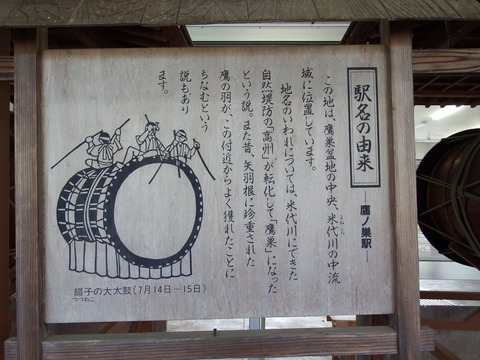 駅名の由来
―鷹ノ巣駅―
この地は、鷹巣盆地の中央、米代川の中流
よねしろ
域に位置しています。
地名のいわれについては、米代川にできた
自然堤防の「高州」が転化して「鷹巣」になった
という説。また昔、矢羽根に珍重された
鷹の羽が、この付近からよく獲れたことに
ちなむという
説もあり
ます。
綴子の大太鼓(7月14日－15日)
つづれこ